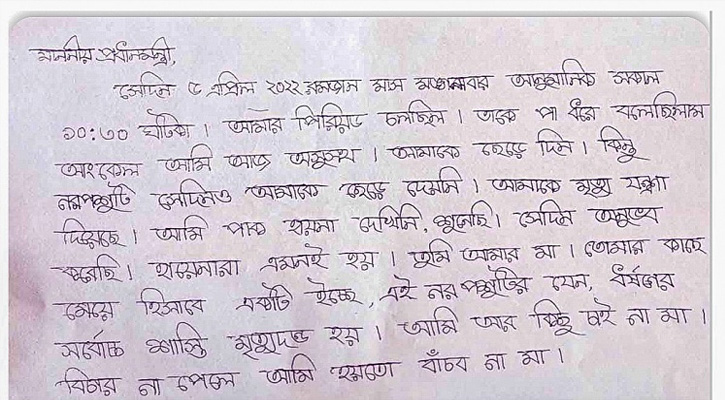 মাননীয় প্রধানমন্ত্রী,
সেদিন ৫ এপ্রিল ২০২২ রমজান মাস মঙ্গলবার আনুমানিক সকাল
১০:৩০ ঘটিকা। আমার পিরিয়ড চলছিল। তাকে পা ধরে বলেছিলাম
আংকেল আমি আজ অসুস্থ। আমাকে ছেড়ে দিন। কিন্তু
নরপশুটি সেদিনও আমাকে ছেড়ে দেয়নি। আমাকে মৃত্যু যন্ত্রণা
দিয়েছে। আমি পাক হায়না দেখিনি, শুনেছি। সেদিন অনুভব
করেছি। হায়েনারা এমনই হয়। তুমি আমার মা। তোমার কাছে
মেয়ে হিসাবে একটি ইচ্ছে, এই নর পশুটির যেন, ধর্ষনের
সর্বোচ্চ শাস্তি মৃত্যুদন্ড হয়। আমি আর কিছু চাই না মা।
বিচার না পেলে আমি হয়তো বাঁচব না মা।